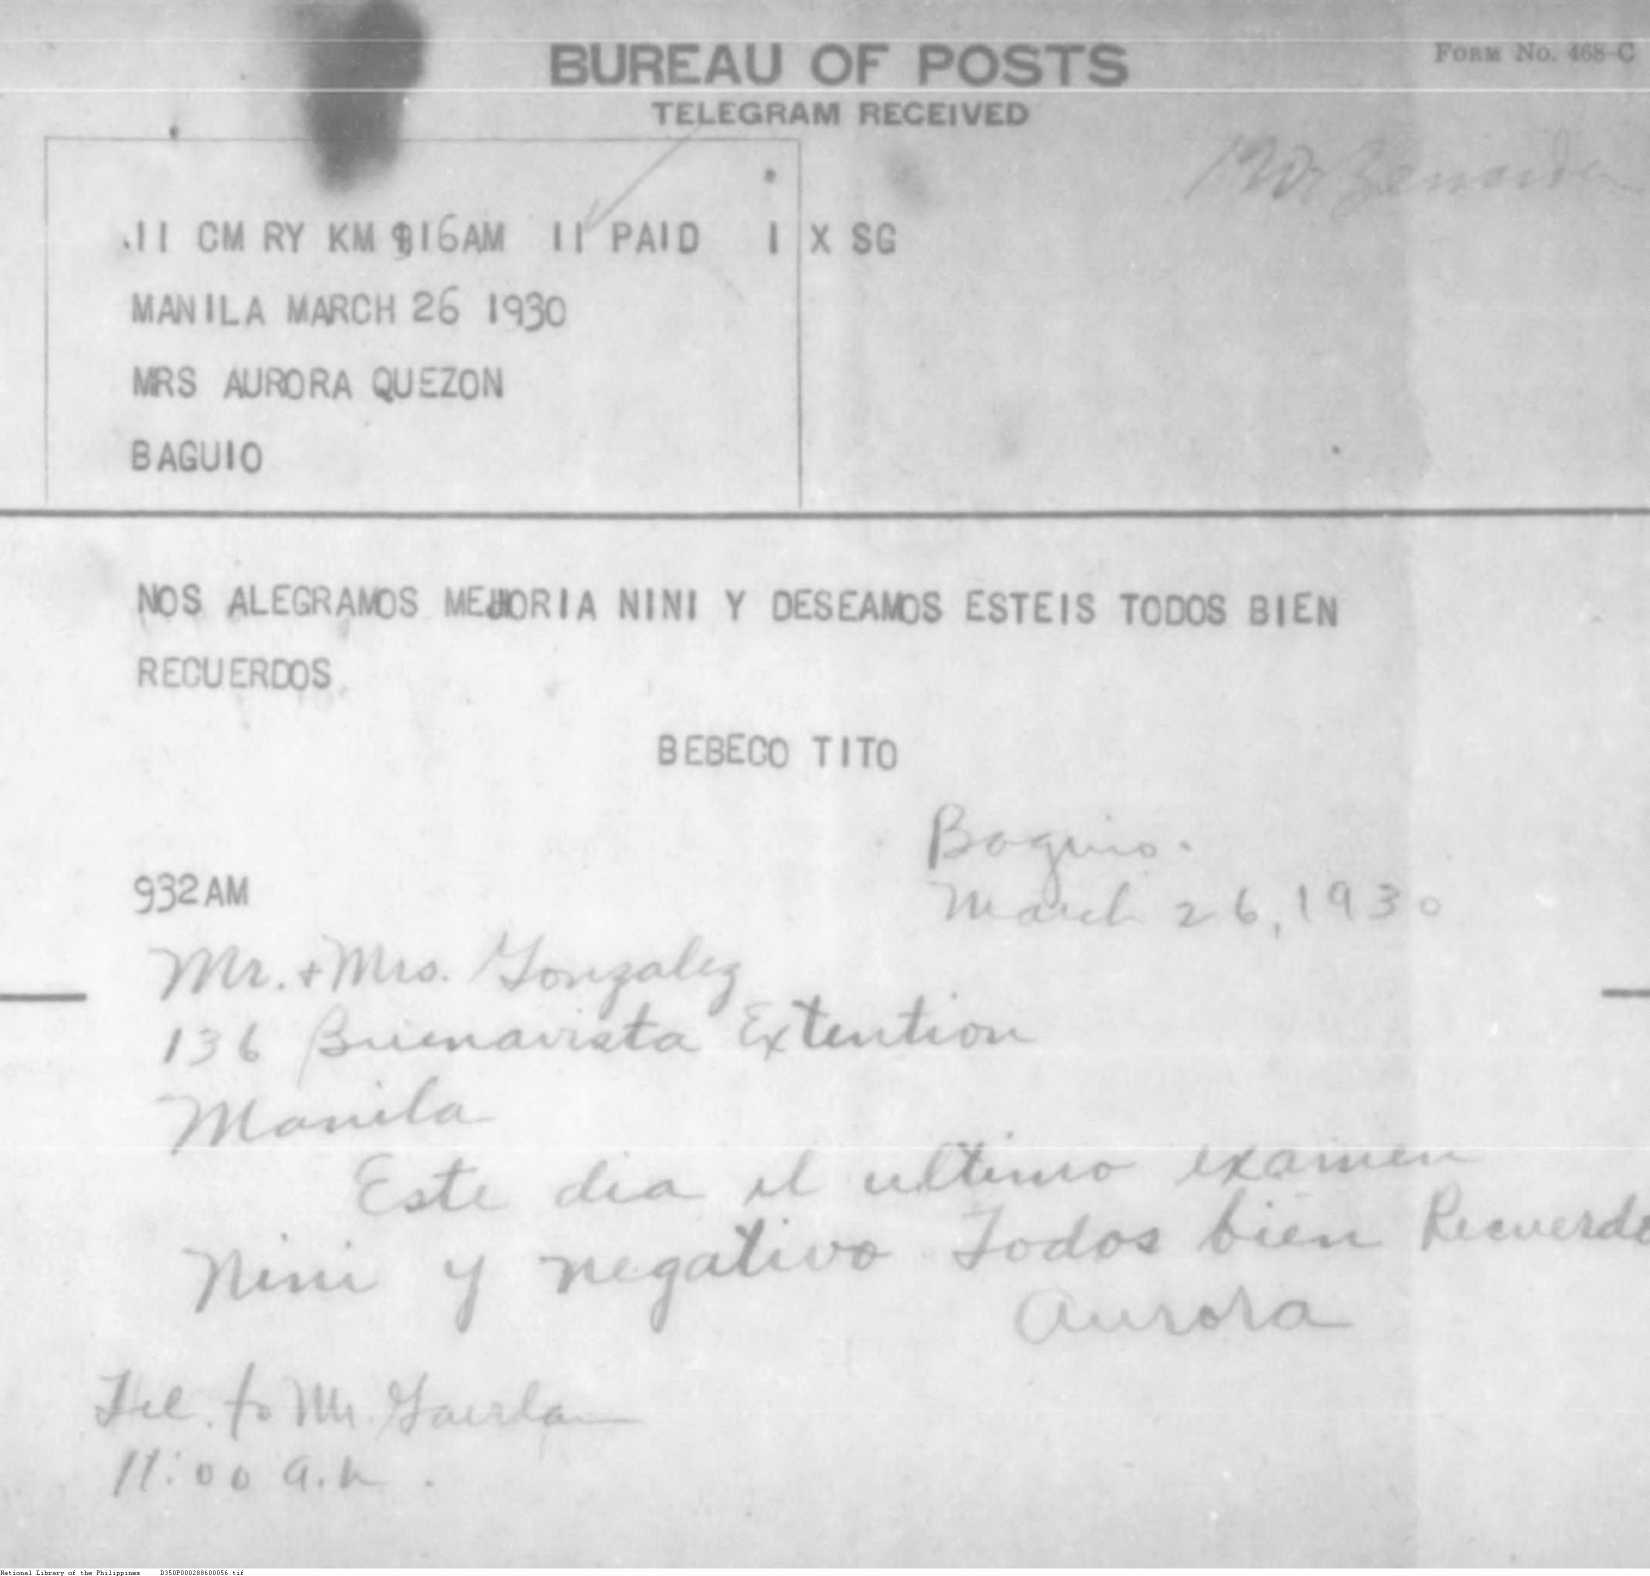 BUREAU OF POSTS
FORM NO. 468-C
TELEGRAM RECEIVED
.11 CM RY KM 916AM 11 PAID 1 X SG
MANILA MARCH 26 1930
MRS AURORA QUEZON
BAGUIO
NOS ALEGRAMOS MEJORIA NINI Y DESEAMOS ESTEIS TODOS BIEN
RECUERDOS
BEBECO TITO
Baguio.
932AM
March 26, 1930
Mr. + Mrs. Gonzalez
136 Buenavista Extention
Manila
Este dia el ultimo examen
Nini y negativo Todos bien Recuerdo
Aurora
Tel. to Mr.
11:00 a.m.
National Library of the Philippines D350P000288600056.tif